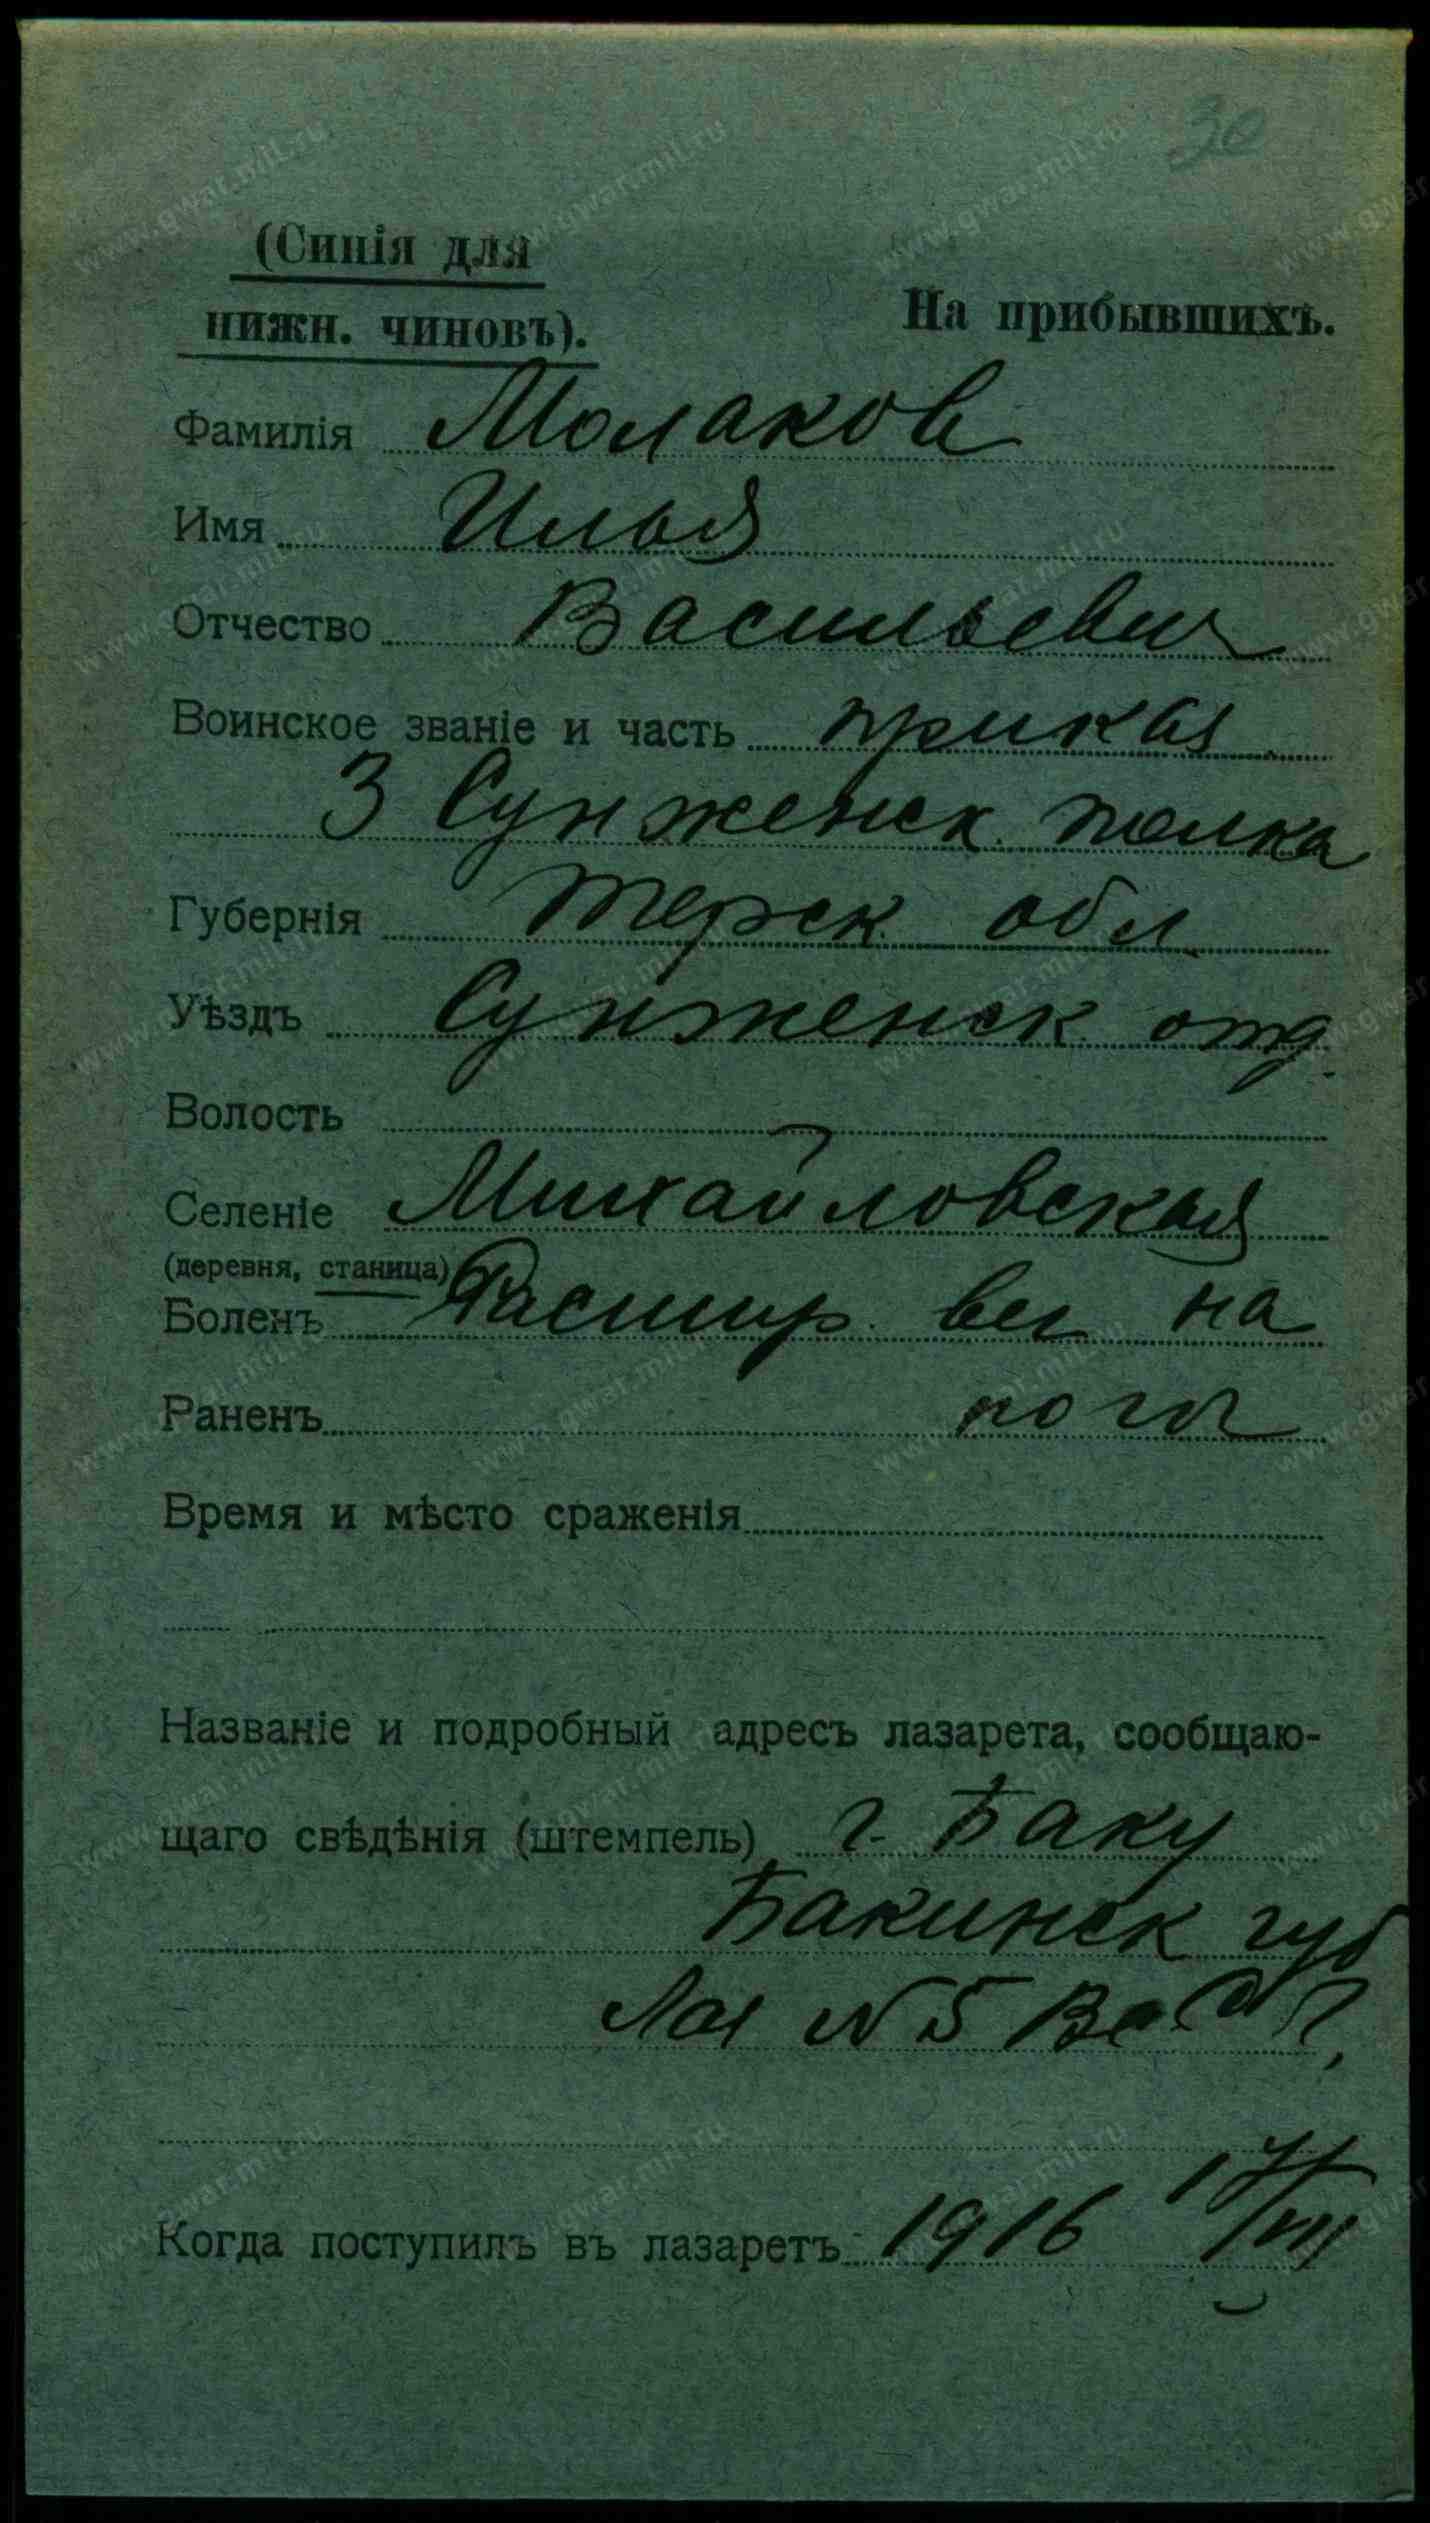 30
(Синія для
нижн. чиновъ).
На прибывшихъ.
Фамилія Молаков
Имя Илья
Отчество Васильевич
Воинское званіе и часть приказ
3 Сунженск. полка
Губернія Терск. обл
Уѣздъ Сунженск. отд.
Волость
Селеніе Михайловская
(деревня, станица)
Боленъ Расшир. вен на
Раненъ ноги
Время и мѣсто сраженія
Названіе и подробный адресъ лазарета, сообщаю-
щаго свѣдѣнія (штемпель) г. Баку
Бакинск губ
Лаз №5
Когда поступилъ въ лазаретъ 1916 17/III